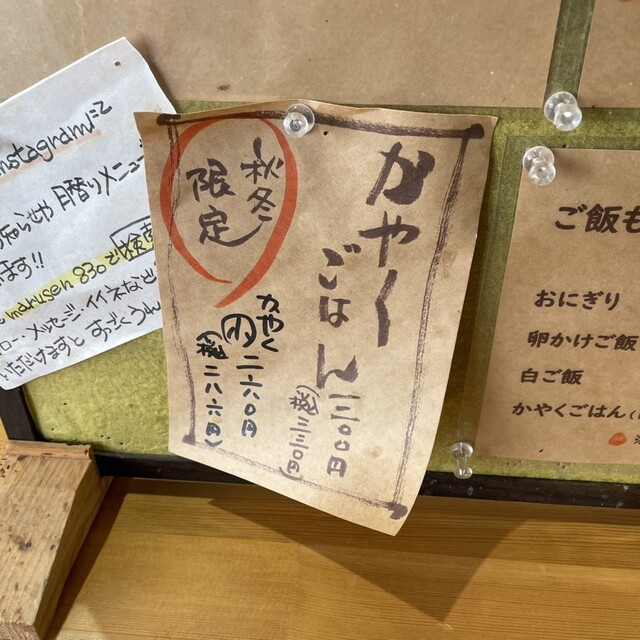 nstagramにて
日替りメニュー
ます!!
makusen 830で検索
メッセージ・イイネなど
いただけますと すっごくうれ
秋冬
限定
かやく
ごはん 三〇〇円
(税込)三三〇円
かやく
(小) 二六〇円
(税込)二八六円
ご飯も
おにぎり
卵かけご飯
白ご飯
かやくごはん(